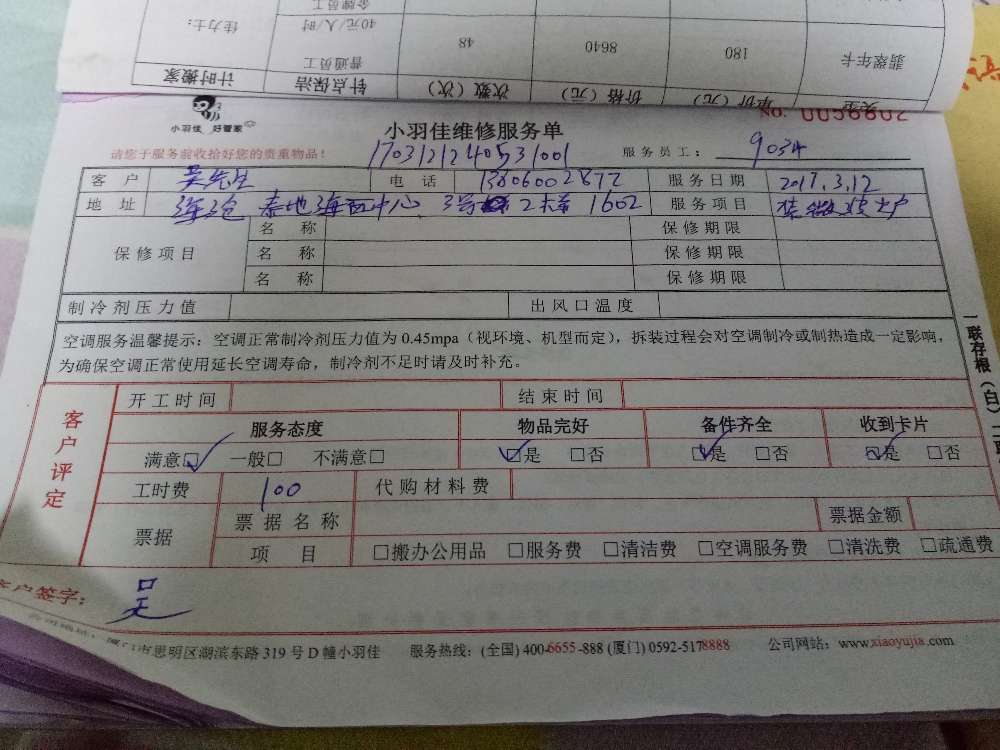 金牌员工
佳力士: 40元/人/时 48 8640 180 翡翠年卡
普通员工
计时搬家 针点保洁 次数(次) 价格(元) 单价(元)
小羽佳 好管家
小羽佳维修服务单
NO.
请您于服务前收拾好您的贵重物品! 1703121240531001 服务员工: 9034
客户 吴先生 电话 13606002872 服务日期 2017.3.12
地址 海沧 泰地海西中心 1602 服务项目
保修项目 名称 保修期限
名称 保修期限
名称 保修期限
制冷剂压力值 出风口温度
空调服务温馨提示:空调正常制冷剂压力值为0.45mpa(视环境、机型而定),拆装过程会对空调制冷或制热造成一定影响,
为确保空调正常使用延长空调寿命,制冷剂不足时请及时补充。
一联存根(白)
客户评定
开工时间 结束时间
服务态度 物品完好 备件齐全 收到卡片
满意☑ 一般□ 不满意□ ☑是 □否 ☑是 □否 ☑是 □否
工时费 100 代购材料费
票据 票据名称 票据金额
项目 □搬办公用品 □服务费 □清洁费 □空调服务费 □清洗费 □疏通费
客户签字: 吴
市思明区湖滨东路319号D幢小羽佳 服务热线:(全国)400-6655-888 (厦门)0592-5178888 公司网站:www.xiaoyujia.com